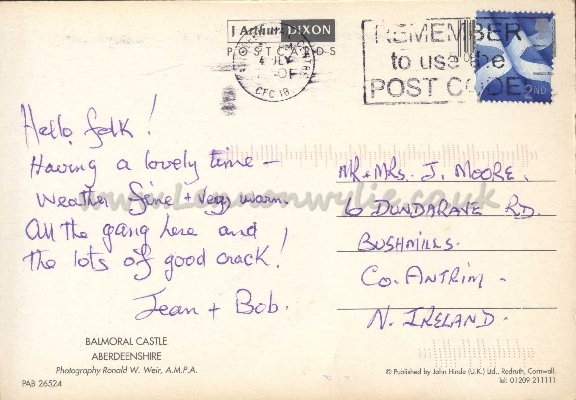 J Arthur DIXON
POSTCARDS
4 JLY
CFC 18
REMEMBER
to use the
POST CODE
2ND
Hello folk!
Having a lovely time —
weather fine + very warm.
All the gang here and
the lots of good crack!
Jean + Bob.
MR + MRS. J. MOORE.
6 DUNDARAVE RD.
BUSHMILLS.
CO. ANTRIM.
N. IRELAND.
BALMORAL CASTLE
ABERDEENSHIRE
Photography Ronald W. Weir, A.M.P.A.
PAB 26524
© Published by John Hinde (U.K.) Ltd., Redruth, Cornwall.
Tel: 01209 211111